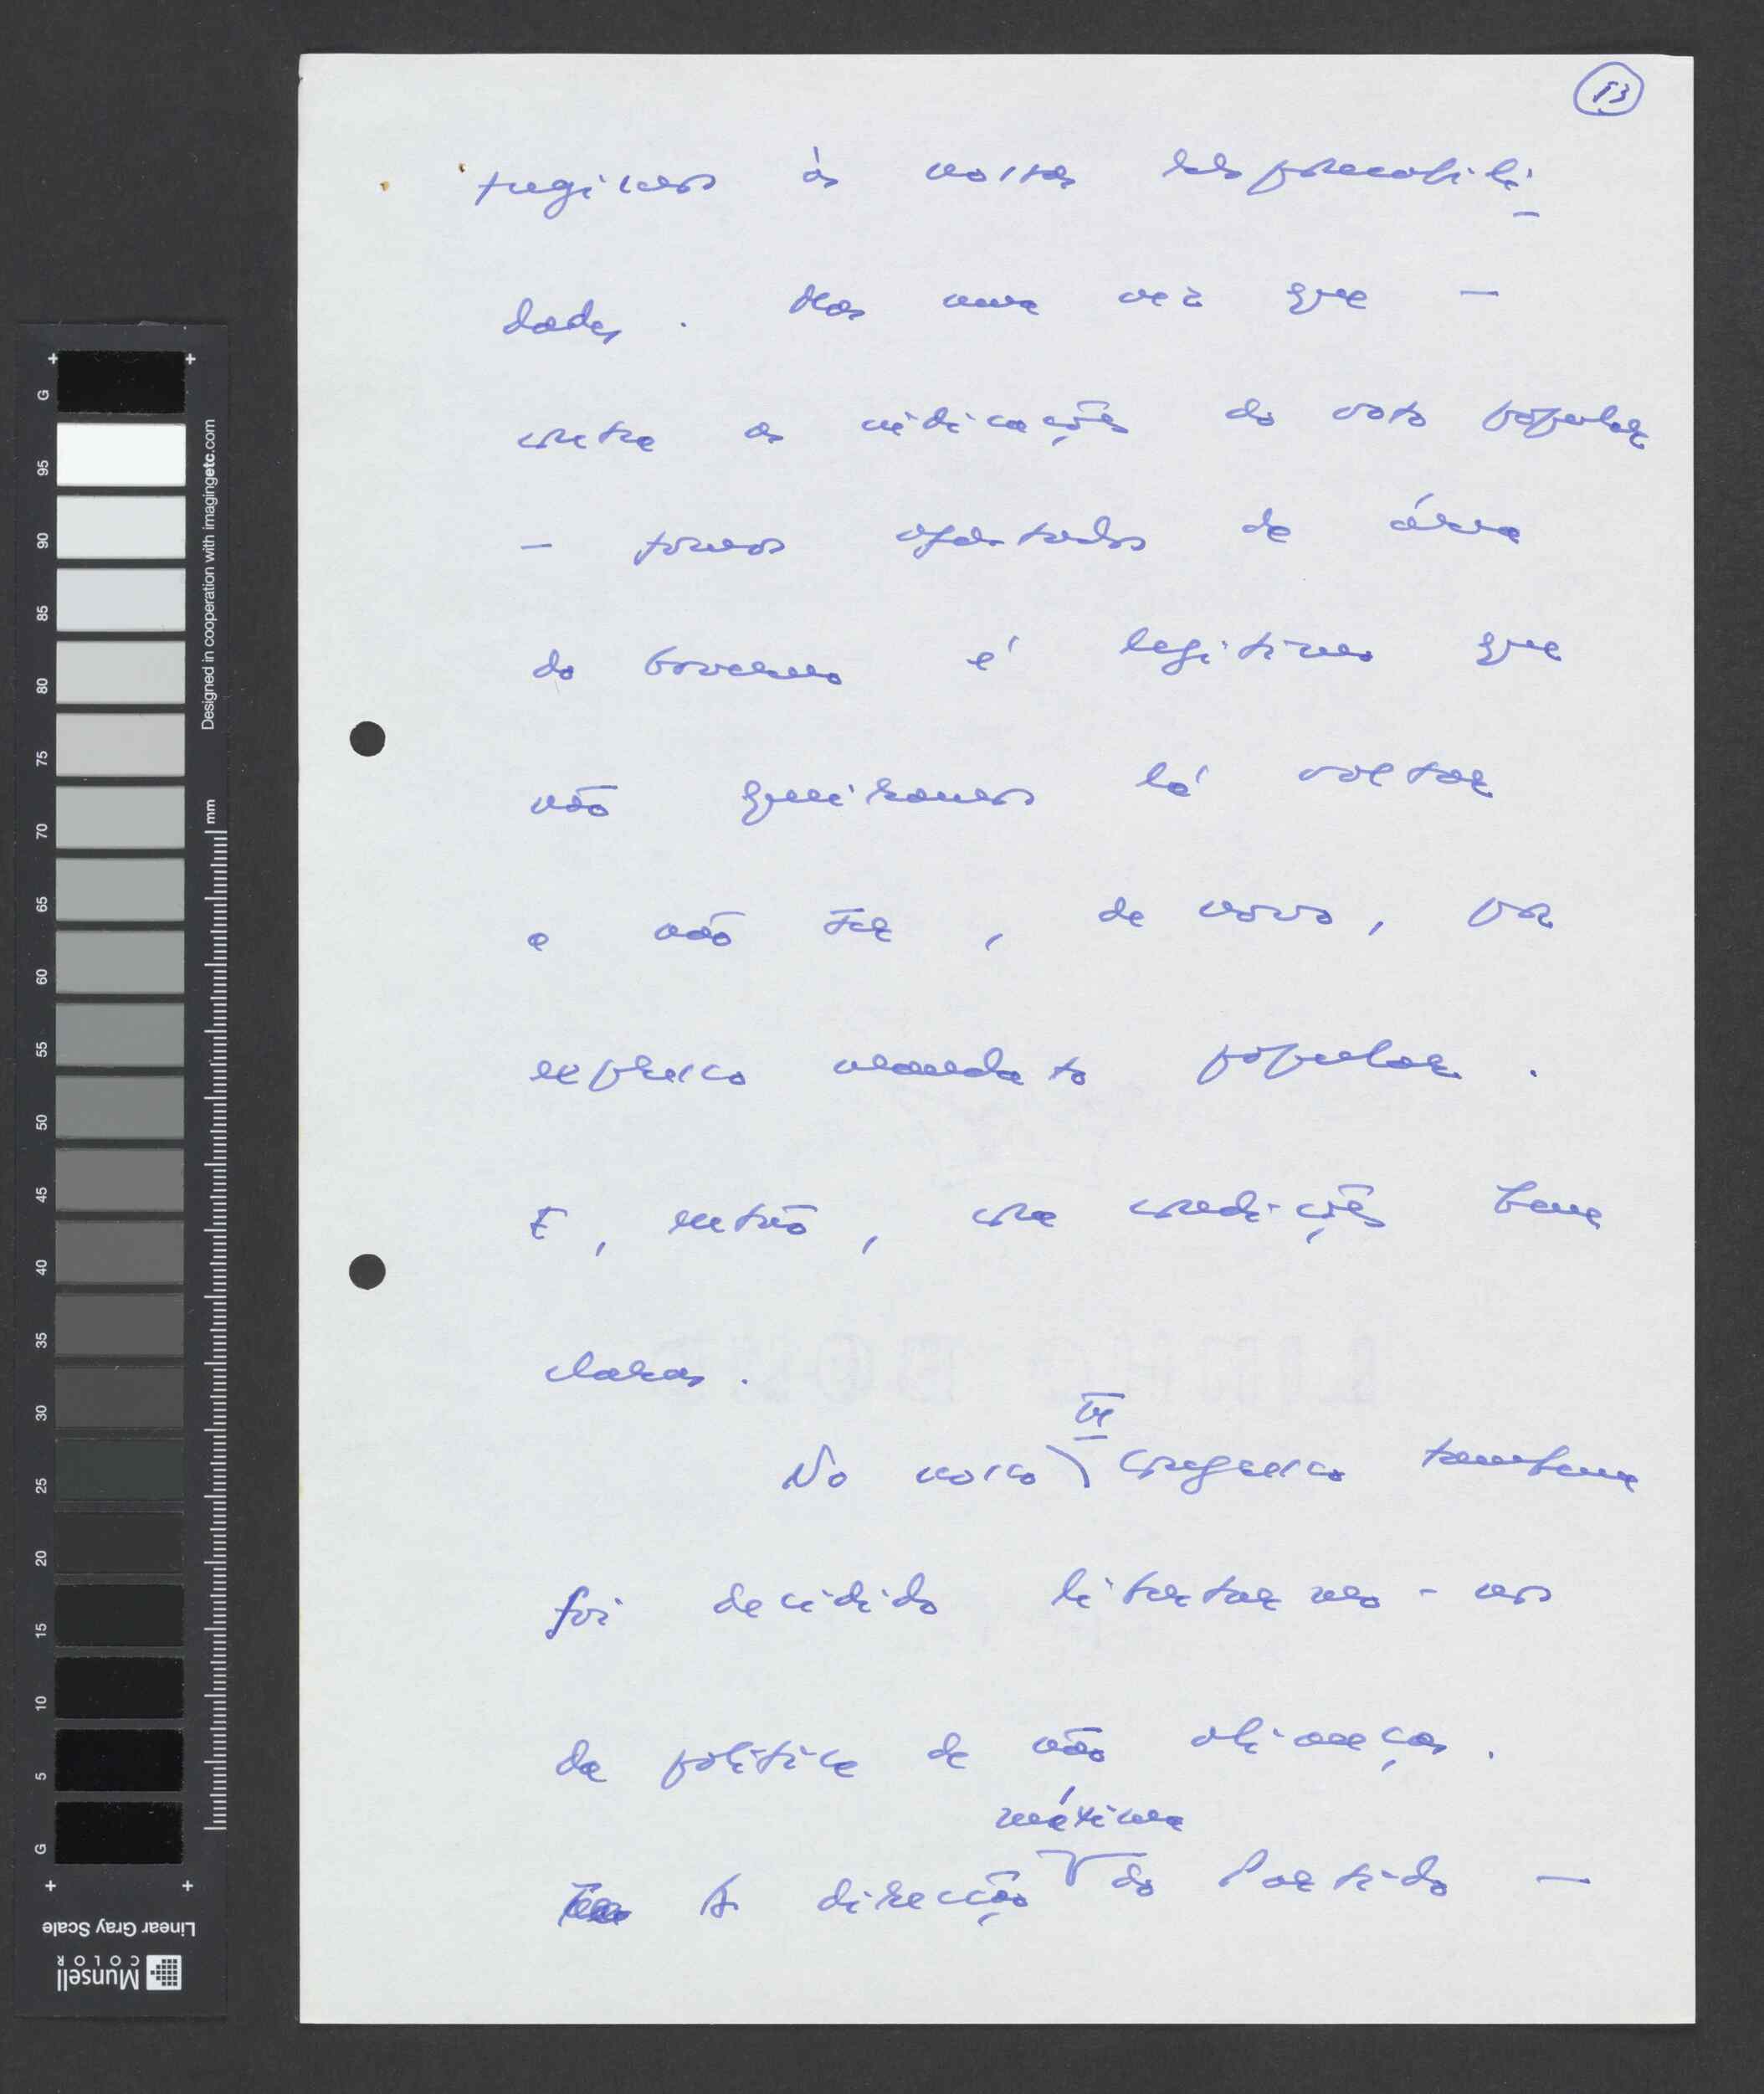 13
fugimos às nossas responsabili-
dades. Mas uma vez que —
contra as indicações do voto popular
— fomos afastados da área
do Governo é legítimo que
não queiramos lá voltar
a não ser, de novo, por
expresso mandato popular.
E, então, com condições bem
claras.
VI
No nosso congresso também
foi decidido libertarmo-nos
da política de não alianças.
máxima
A direcção do Partido —
G
95
90
85
80
75
70
65
60
55
50
45
40
35
30
25
20
15
10
5
G
mm
Designed in cooperation with imagingetc.com
Linear Gray Scale
Munsell
COLOR